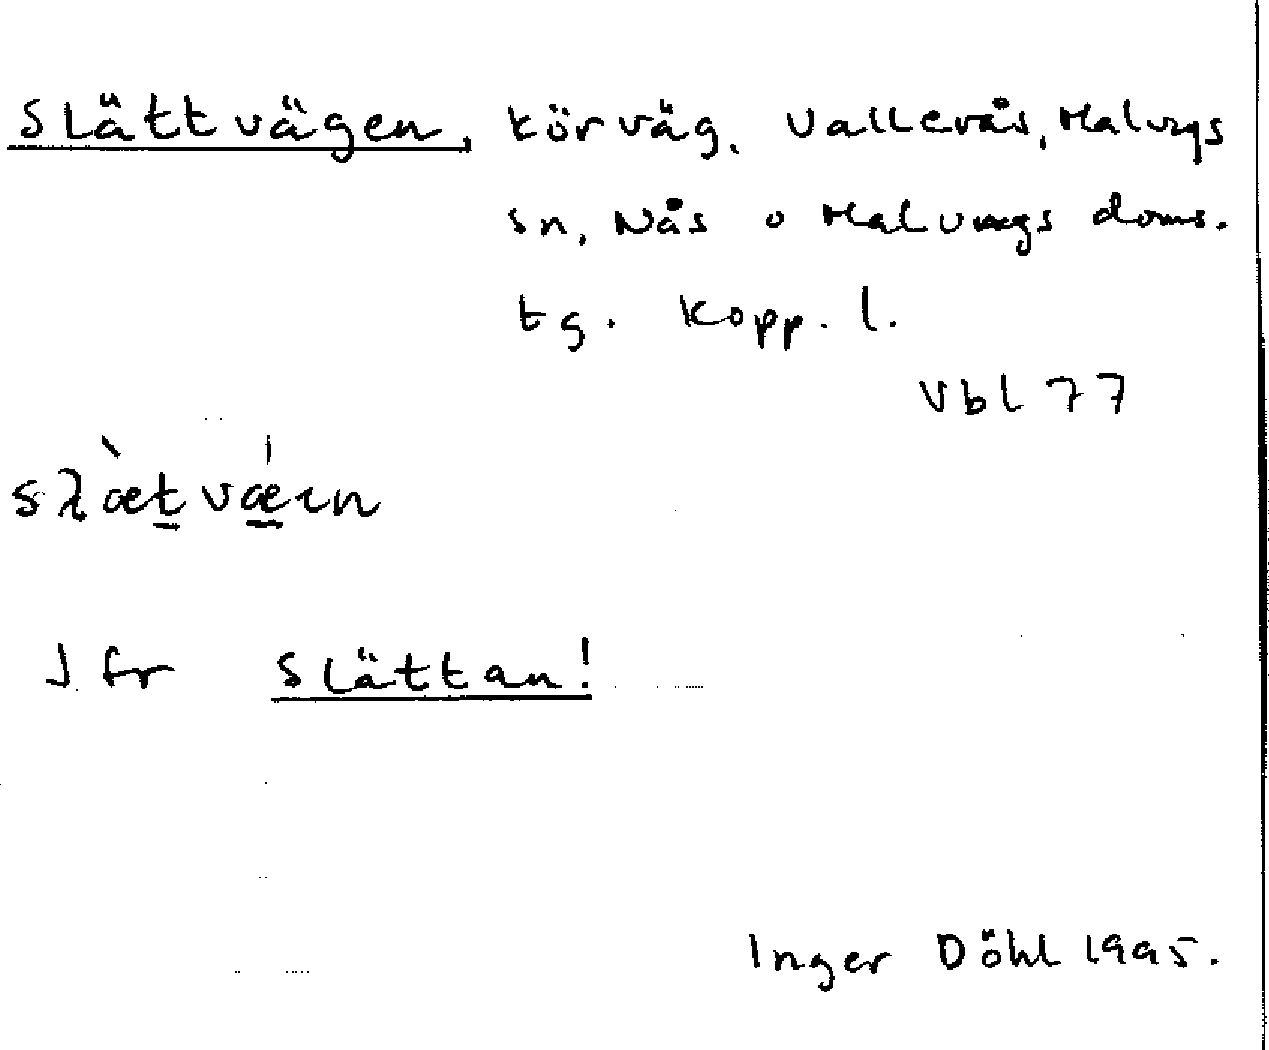 Slättvägen, körväg, Vallerås, Malungs
sn, Nås o Malungs doms.
tg. Kopp. l.
Vbl 77
Jfr Slättan!
Inger Döhl 1995.